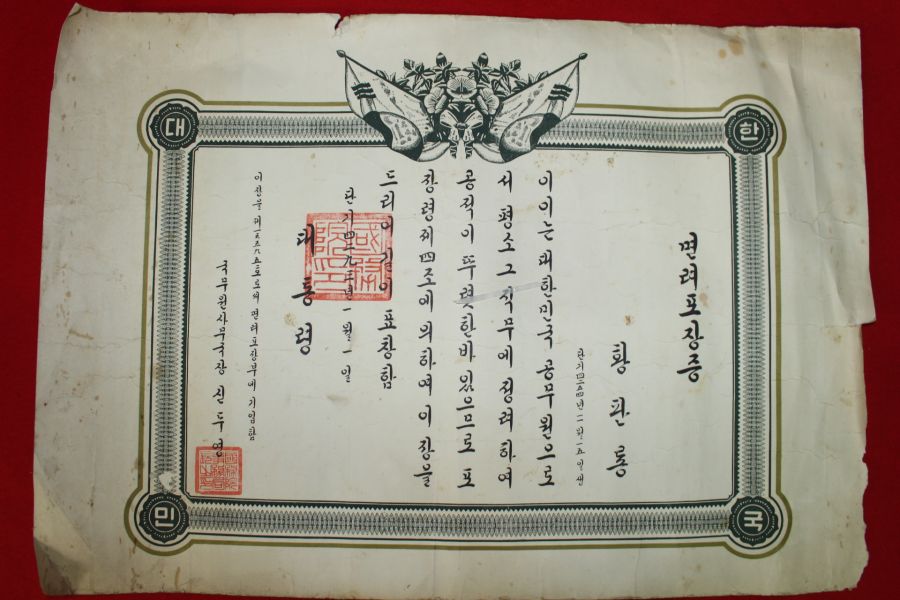 대 한 민 국
면려포장증
황 판
단기四二五四년 二월 一五일생
이이는 대한민국 공무원으로
서 평소 그 직무에 정려하여
공적이 뚜렷한바 있으므로 포
장령제四조에 의하여 이 장을
드리어 길이 표창함
단기四二九三년 一월 一일
대통령
이 장을 제一五六五호로써 면려포장부에 기입함
국무원사무국장 신두영